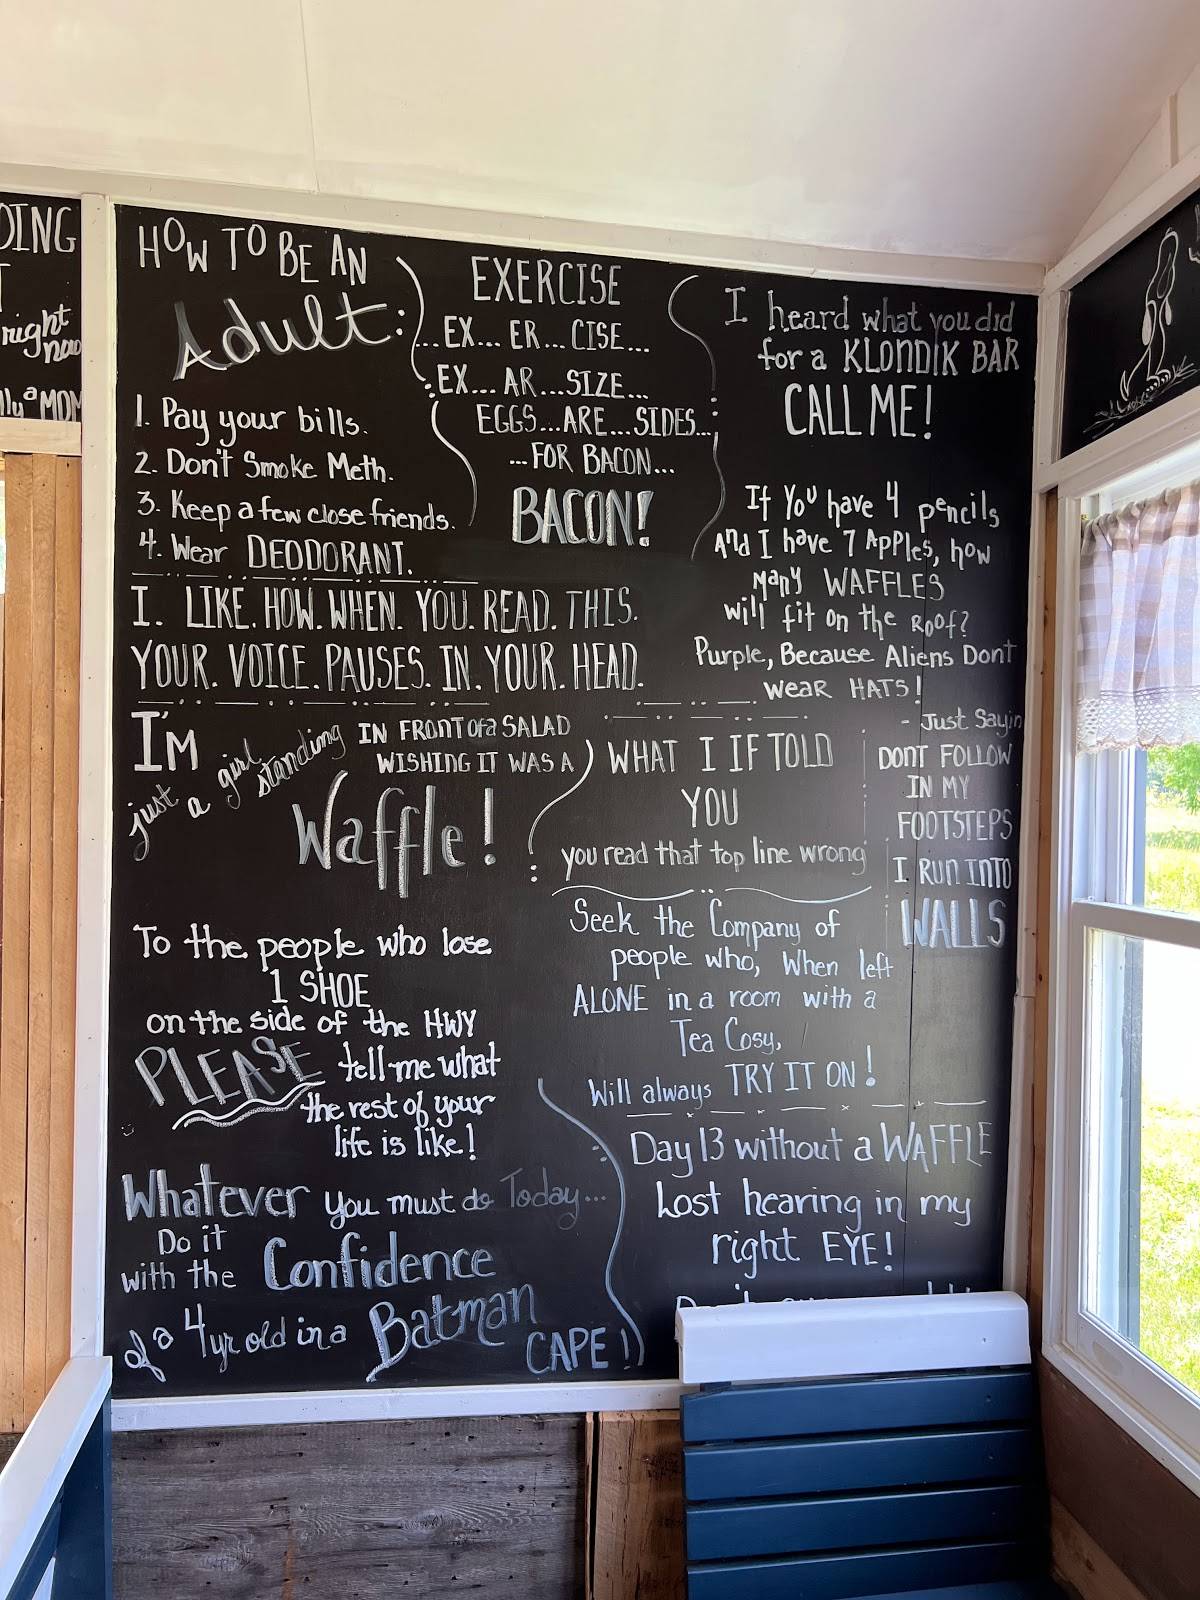 DING
right
now
a MOM
HOW TO BE AN
Adult:
1. Pay your bills.
2. Don't Smoke Meth.
3. Keep a few close friends.
4. Wear DEODORANT.
EXERCISE
...EX... ER... CISE...
EX... AR...SIZE...
EGGS...ARE...SIDES...
...FOR BACON...
BACON!
I heard what you did
for a KLONDIK BAR
CALL ME!
If You have 4 pencils
And I have 7 Apples, how
many WAFFLES
will fit on the Roof?
Purple, Because Aliens Dont
wear HATS!
- Just Sayin
I. LIKE. HOW. WHEN. YOU. READ. THIS.
YOUR. VOICE. PAUSES. IN. YOUR. HEAD.
I'M
just a girl standing IN FRONT of a SALAD
WISHING IT WAS A
Waffle!
WHAT I IF TOLD
YOU
you read that top line wrong
DONT FOLLOW
IN MY
FOOTSTEPS
I RUN INTO
WALLS
To the people who lose
1 SHOE
on the side of the HWY
PLEASE tell me what
the rest of your
life is like!
Seek the Company of
people who, when left
ALONE in a room with a
Tea Cosy,
Will always TRY IT ON!
Whatever you must do Today...
Do it
with the Confidence
of a 4 yr old in a Batman
CAPE!
Day 13 without a WAFFLE
Lost hearing in my
right EYE!